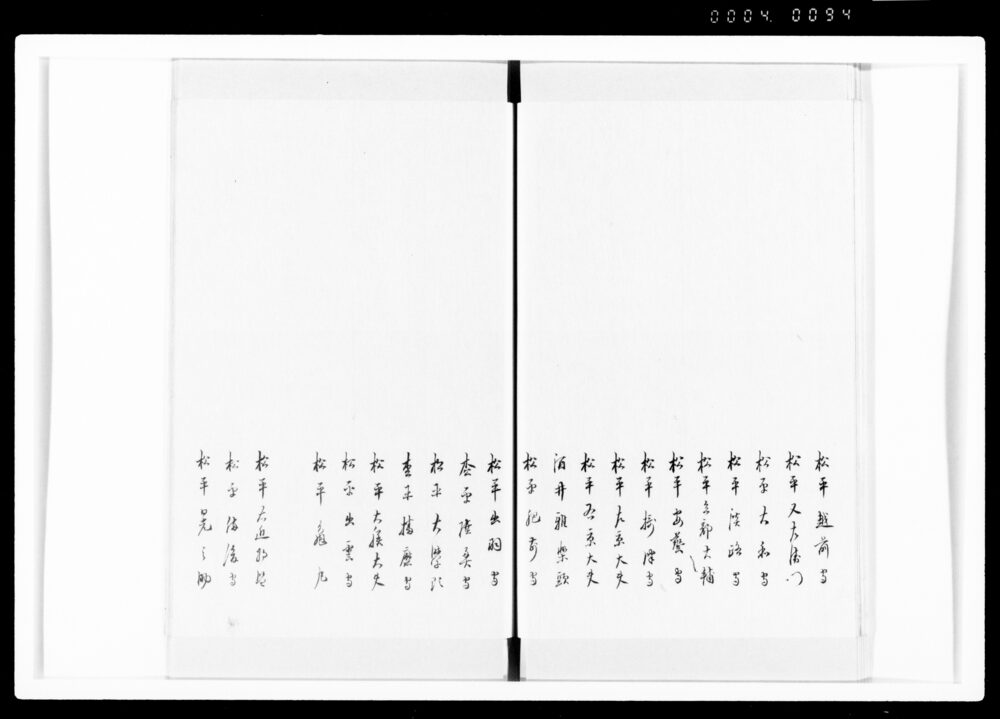 0004. 0094
松平越前守
松平又左衛門
松平大和守
松平淡路守
松平兵部大輔
松平安藝守
松平摂津守
松平左京大夫
松平右京大夫
酒井雅楽頭
松平肥前守
松平出羽守
松平陸奥守
松平大学頭
松平播磨守
松平大膳大夫
松平出雲守
松平亀丸
松平右近将監
松平備後守
松平晃之助